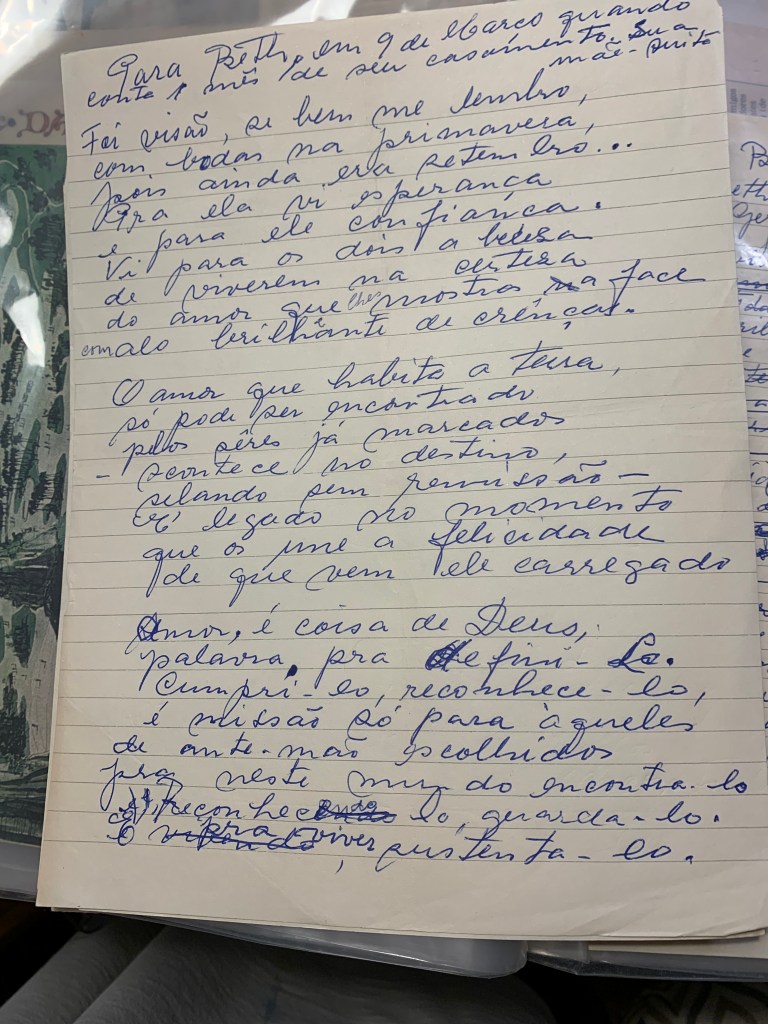 Para Beth, em 9 de Março quando
conta 1 mês de seu casamento. Sua
mãe-
Foi visão, se bem me lembro,
com bodas na primavera,
pois ainda era setembro...
Pra ela vi esperança
e para ele confiança.
Vi para os dois a beleza
de viverem na certeza
do amor que lhes mostra a face
com alo brilhante de crênças.
O amor que habita a terra,
só pode ser encontrado
pelos sêres já marcados
- acontece no destino,
selando sem remissão -
É legado no momento
que os une a felicidade
de que vem ele carregado
Amor, é coisa de Deus,
palavra, pra defini-lo.
Cumpri-lo, reconhece-lo,
é missão só para àqueles
de ante-mão escolhidos
pra neste mundo encontra-lo
Reconhece lo, guarda-lo.
e pra viver, sustenta-lo.